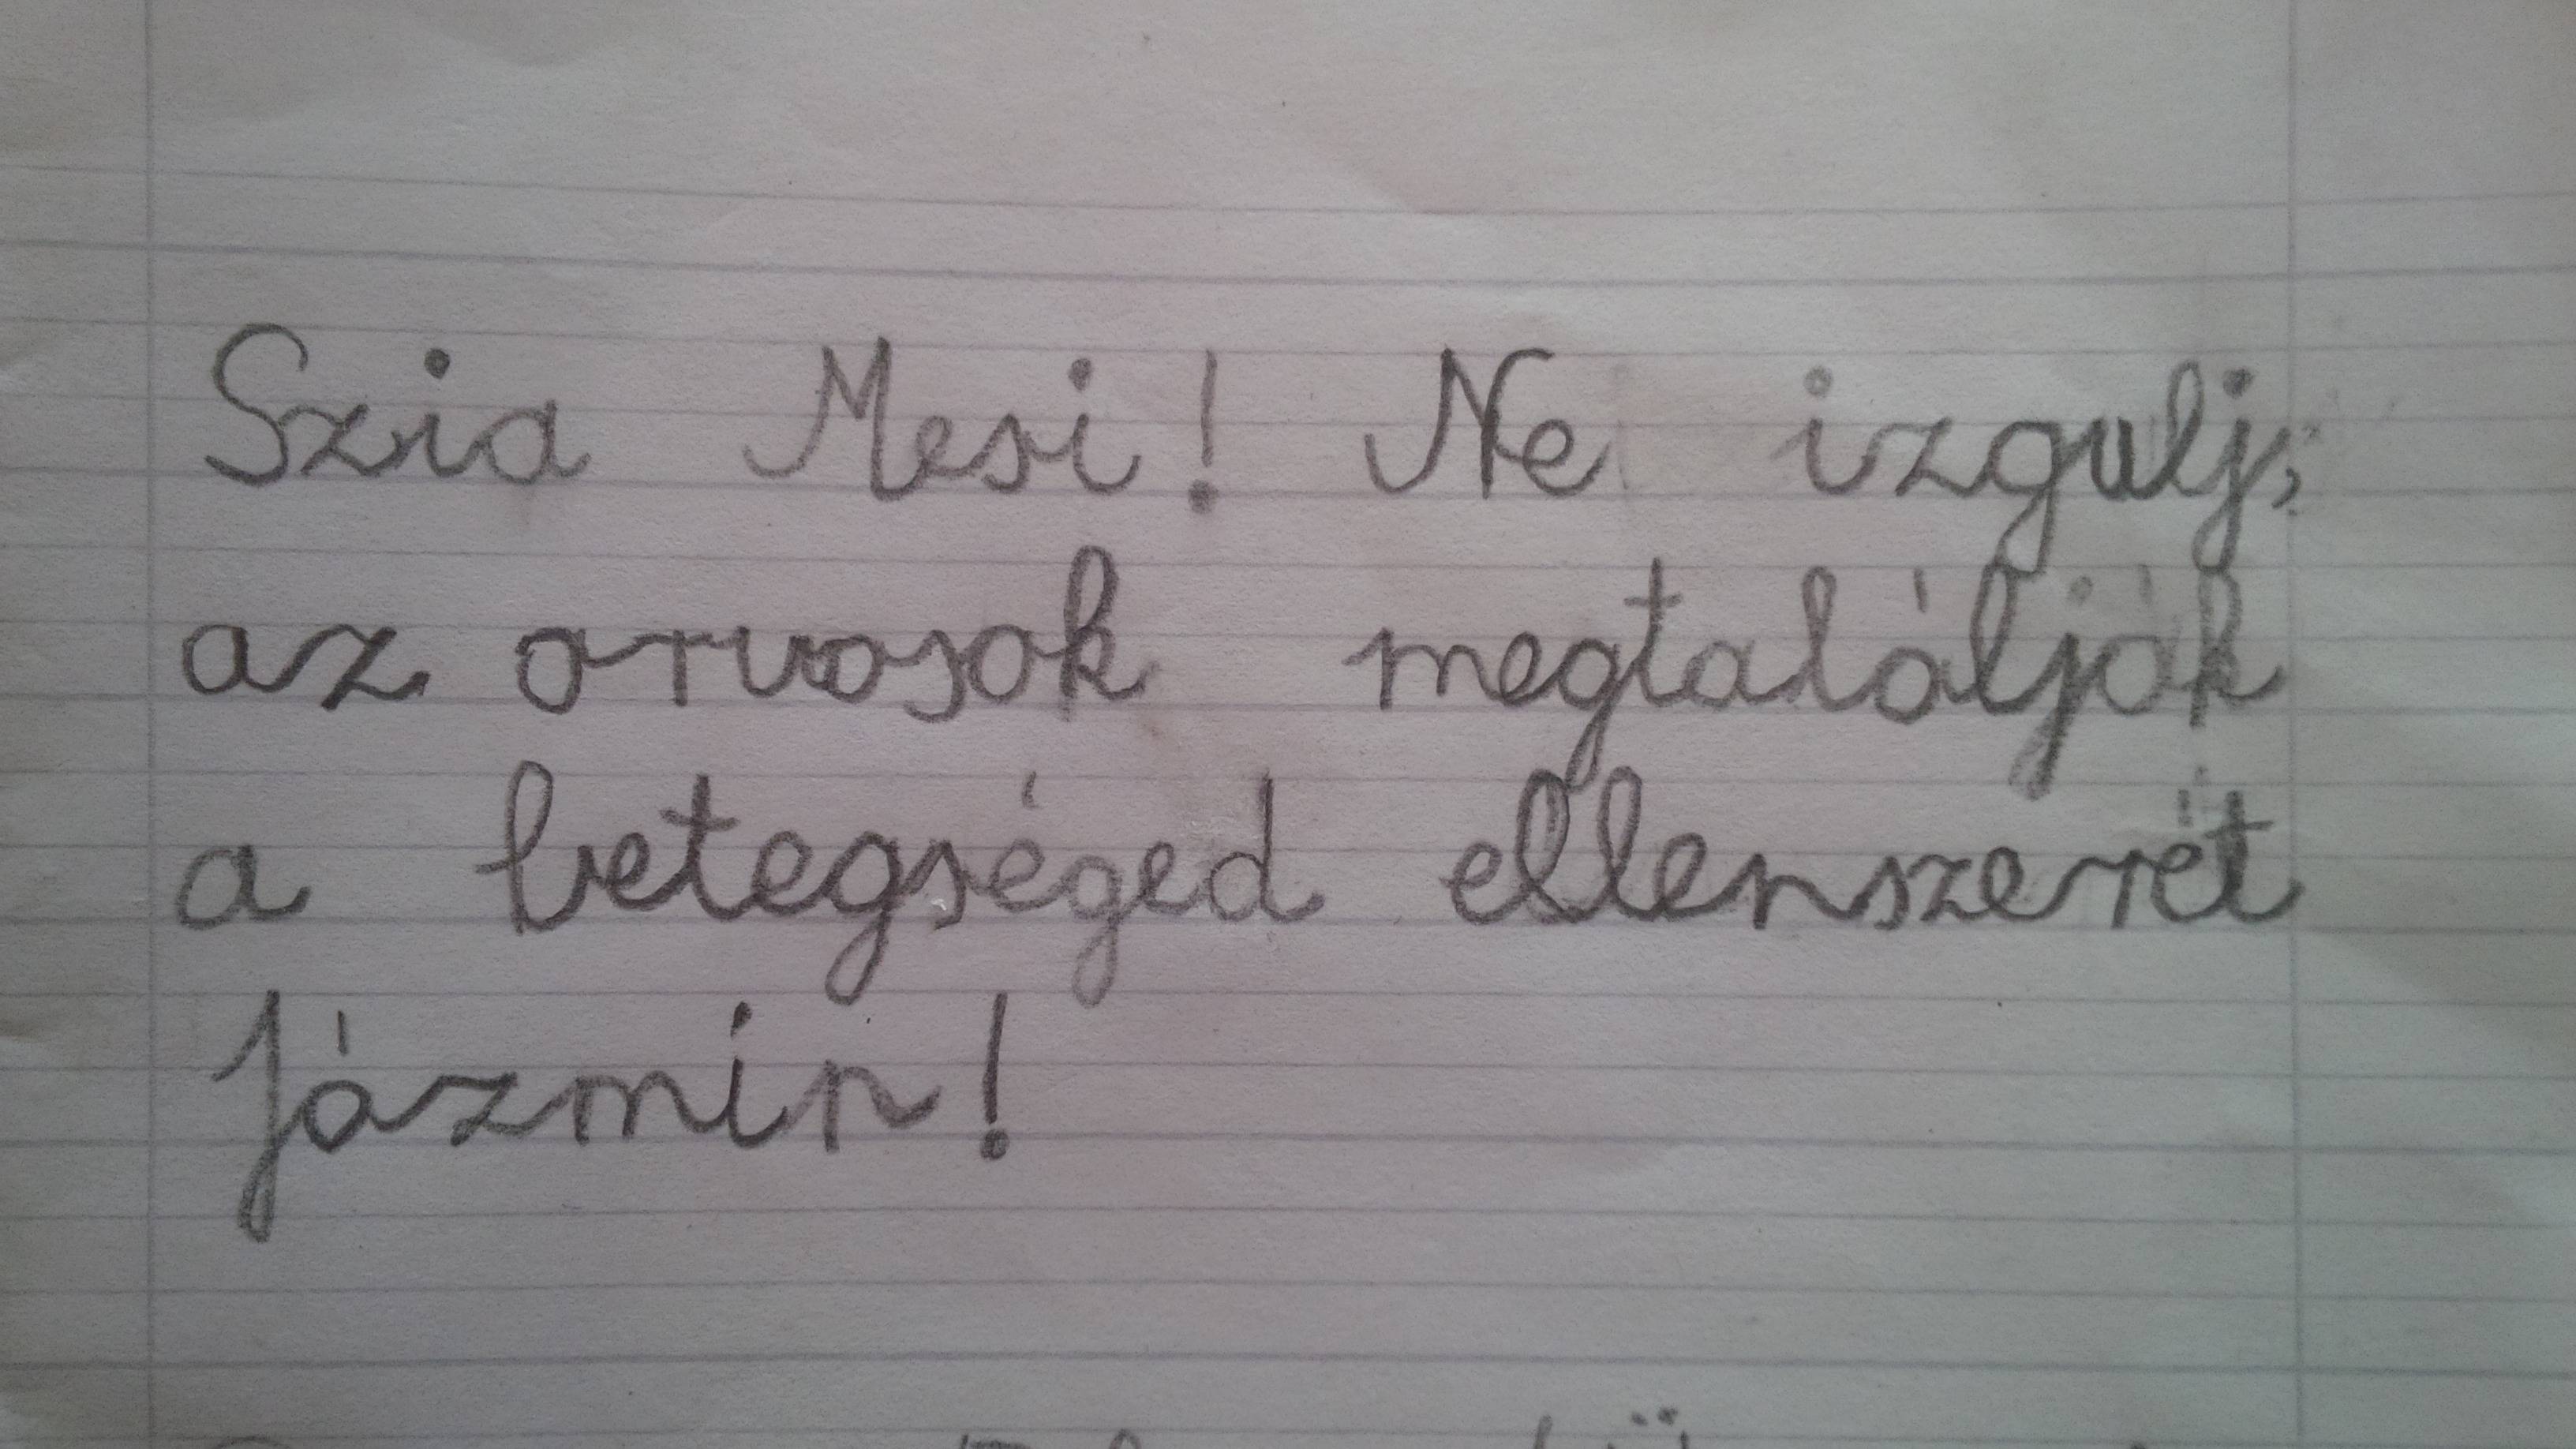 Szia Mesi! Ne izgulj,
az orvosok megtalálják
a betegséged ellenszerét
Jázmin!